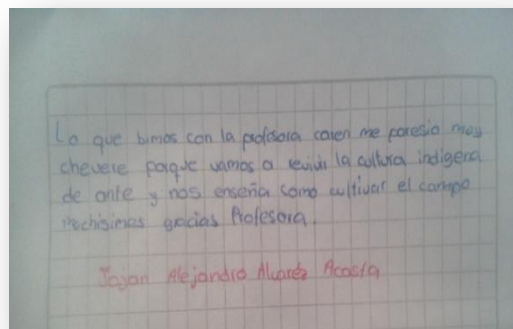 Lo que bimos con la profesora caren me paresio muy
chevere porque vamos a revivir la cultura indigena
de ante y nos enseña como cultivar el campo
muchisimas gracias Profesora.
Jayan Alejandro Alvarez Acosta